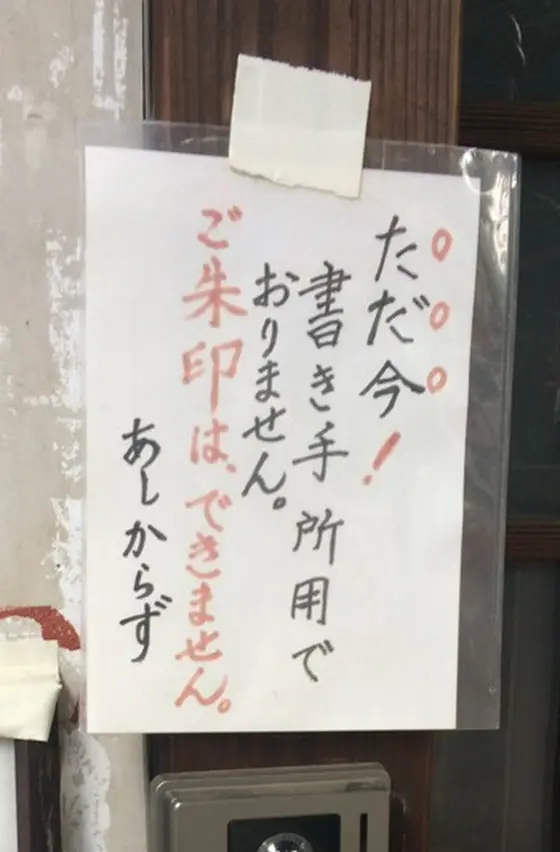 ただ今!
書き手所用で
おりません。
ご朱印は、できません。
あしからず